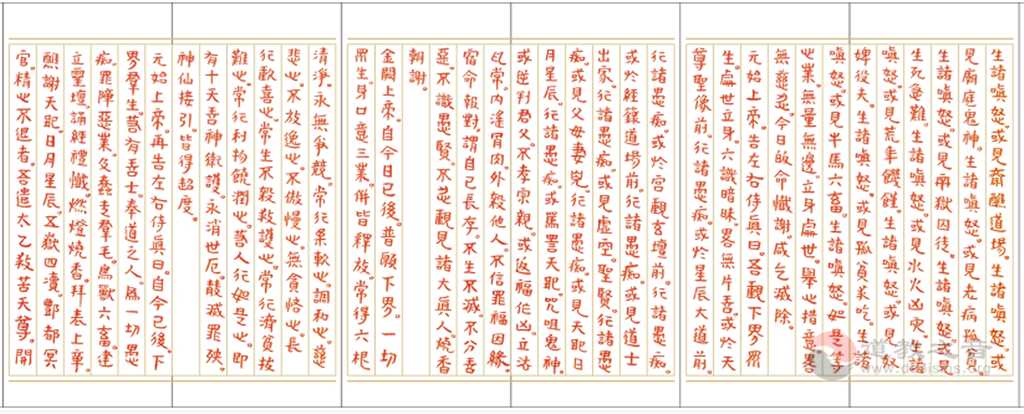 生諸嗔怒。或見齋醮道場。生諸嗔怒。或
見廟庭鬼神。生諸嗔怒。或見老病貧窮。
生諸嗔怒。或見刑獄囚徒。生諸嗔怒。或見
生死急難。生諸嗔怒。或見水火凶災。生諸
嗔怒。或見荒年饑饉。生諸嗔怒。或見奴
婢役夫。生諸嗔怒。或見孤貧求乞。生諸
嗔怒。或見牛馬六畜。生諸嗔怒。如是等
心業。無量無邊。立身處世。舉心措意。畧
無慈念。今日啟命懺謝。咸乞滅除。
元始上帝。告左右侍眞曰。吾觀下界眾
生。處世立身。六識暗昧。畧無片善。或於天
尊聖像前。行諸愚痴。或於星辰大道前。
行諸愚痴。或於宮觀玄壇前。行諸愚痴。
或於經籙道場前。行諸愚痴。或見道士
出家。行諸愚痴。或見虛空。聖賢。行諸愚
痴。或見父母妻兒。行諸愚痴。或見天地日
月星辰。行諸愚痴。或罵詈天地。咒咀鬼神。
或逆對君父。不孝宗親。或返福作凶。立法
常。内淫骨肉。外殺他人。不信罪福因緣。
宿命報對。謂自己長存。不生不滅。不分善
惡。不識愚賢。不忌觀見諸大眞人。燒香
朝謝。
金闕上帝。自今日已後。普願下界。一切
眾生。身口意三業。併皆釋放。常得六根
清淨。永無爭競。常行柔軟心。調和心。慈
悲心。不放逸心。不傲慢心。無貪悋心。長
行歡喜心。常生不殺救護心。常行濟貧拔
難心。常行利物饒潤心。善人行如是心。即
有十天善神衛護。永消世厄。殄滅罪殃。
神仙接引。皆得超度。
元始上帝。再告左右侍眞曰。自今已後。下
界羣生。若有善士奉道之人。爲一切愚
痴。罪障惡業。及蠢走羣毛。鳥獸六畜。建
立靈壇。誦經禮懺。燃燈燒香。拜表上章。
醮謝天地。日月星辰。五嶽四瀆。酆都冥
官。精心不退者。吾遣太乙救苦天尊。開
道教之音
www.daoisms.org